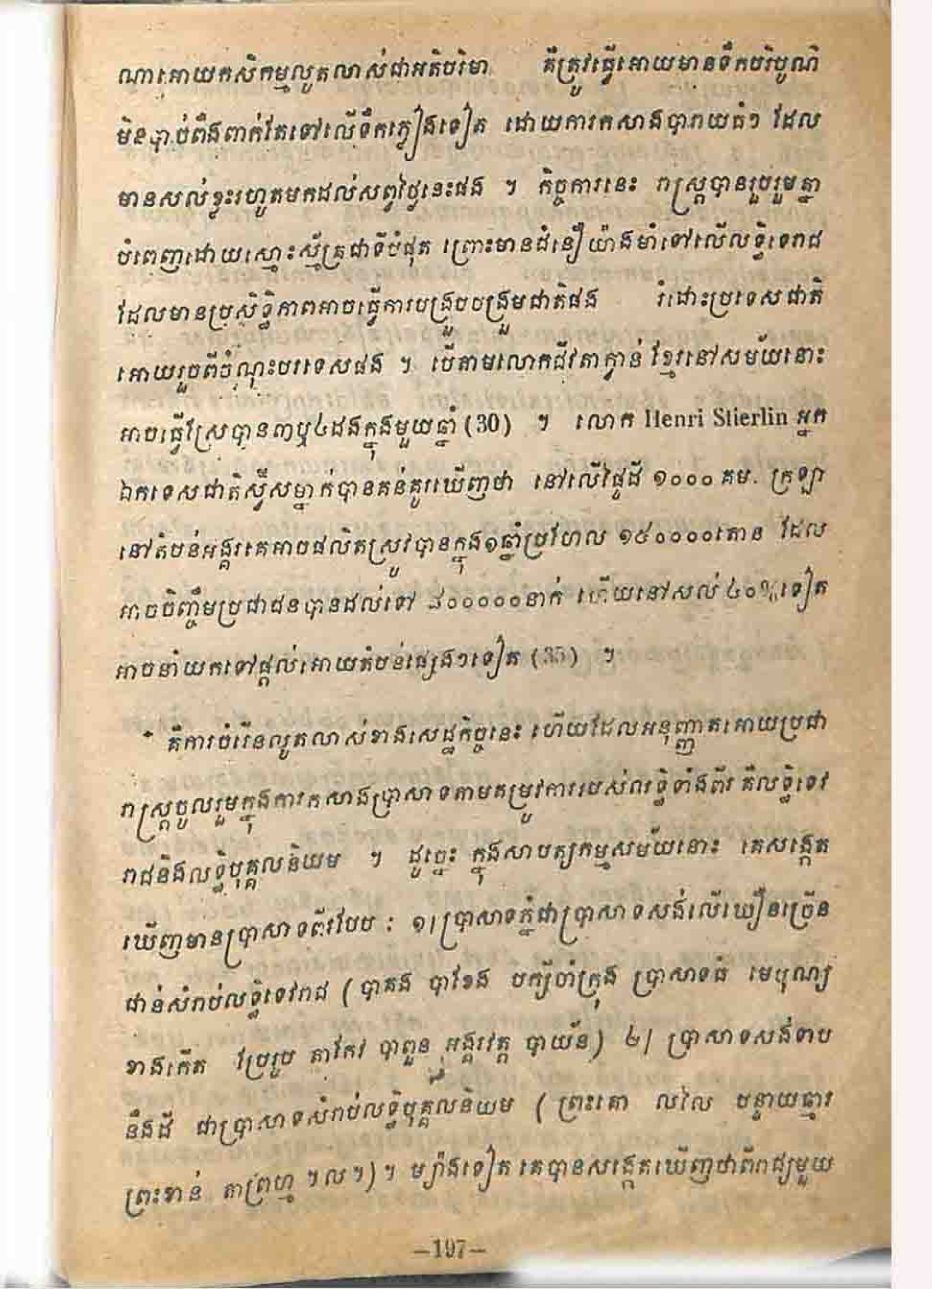 ណាអោយកសិកម្មលូតលាស់ជាអតិបរិមា គឺត្រូវធ្វើអោយមានទឹកបរិបូណ៌
មិនច្បាប់ពឹងពាក់តែទៅលើទឹកភ្លៀងទៀត ដោយការកសាងបារាយធំៗ ដែល
មានសល់ខ្លះរហូតមកដល់សព្វថ្ងៃនេះផង ។ កិច្ចការនេះ រាស្ត្របានរួបរួមគ្នា
បំពេញដោយស្មោះស្ម័គ្រជាទីបំផុត ព្រោះមានជំនឿយ៉ាងមាំទៅលើលទ្ធិទេវរាជ
ដែលមានប្រសិទ្ធិភាពអាចធ្វើការបង្រួបបង្រួមជាតិផង រំដោះប្រទេសជាតិ
អោយរួចពីចំណុះបរទេសផង ។ បើតាមលោកជីវតាក្វាន់ ខ្មែរនៅសម័យនោះ
អាចធ្វើស្រែបាន៣ឬ៤ដងក្នុងមួយឆ្នាំ (30) ។ លោក Henri Stierlin អ្នក
ឯកទេសជាតិស្វ៊ីសម្នាក់បានគន់គូរឃើញថា នៅលើផ្ទៃដី ១០០០ គម. ក្រឡា
នៅតំបន់អង្គរគេអាចផលិតស្រូវបានក្នុង១ឆ្នាំប្រហែល ១៥០០០០តោន ដែល
អាចចិញ្ចឹមប្រជាជនបានដល់ទៅ ៨០០០០០នាក់ ហើយនៅសល់ ៤០%ទៀត
អាចនាំយកទៅផ្តល់អោយតំបន់ផ្សេងៗទៀត (35) ។
គឺការចំរើនលូតលាស់ខាងសេដ្ឋកិច្ចនេះ ហើយដែលអនុញ្ញាតអោយប្រជា
រាស្ត្រចូលរួមក្នុងការកសាងប្រាសាទតាមតម្រូវការរបស់លទ្ធិទាំងពីរ គឺលទ្ធិទេវ
រាជនិងលទ្ធិបុគ្គលនិយម ។ ដូច្នេះ ក្នុងសាបត្យកម្មសម័យនោះ គេសង្កេត
ឃើញមានប្រាសាទពីរបែប : ១/ ប្រាសាទភ្នំជាប្រាសាទសង់លើឃឿនច្រើន
ជាន់សំរាប់លទ្ធិទេវរាជ ( បាគង បាខែង បក្សីចាំក្រុង ប្រាសាទធំ មេបុណ្យ
ខាងកើត ប្រែរូប តាកែវ បាពួន អង្គរវត្ត បាយ័ន) ២/ ប្រាសាទសង់ទាប
នឹងដី ជាប្រាសាទសំរាប់លទ្ធិបុគ្គលនិយម ( ព្រះគោ លលៃ បន្ទាយឆ្មារ
ព្រះខាន់ តាព្រហ្ម ។ល។) ។ ម្យ៉ាងទៀត គេបានសង្កេតឃើញថាពីរាជ្យមួយ
–197–